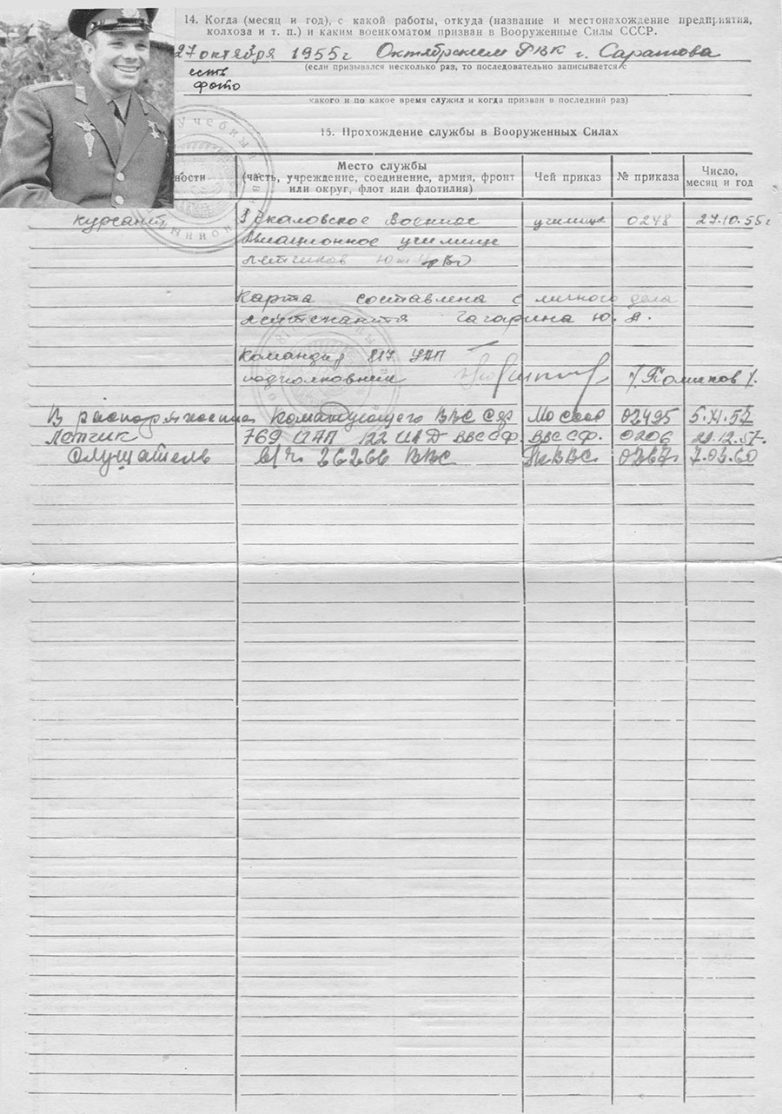 14. Когда (месяц и год), с какой работы, откуда (название и местонахождение предприятия,
колхоза и т. п.) и каким военкоматом призван в Вооруженные Силы СССР.
27 октября 1955 г Октябрьским РВК г. Саратова
(если призывался несколько раз, то последовательно записывается с
есть
фото
какого и по какое время служил и когда призван в последний раз)
15. Прохождение службы в Вооруженных Силах
ности
Место службы
(часть, учреждение, соединение, армия, фронт
или округ, флот или флотилия)
Чей приказ
№ приказа
Число,
месяц и год
курсант Чкаловское военное училище 0248 27.10.55г
авиационное училище
летчиков
Карта составлена с личного дела
лейтенанта Гагарина Ю. А.
Командир 817 УАП
подполковник
В распоряжение командующего ВВС СФ Москов 02495 5.XI.57
Летчик 769 ИАП 122 ИАД ВВС СФ. ВВС СФ. 0206 29.12.57.
Слушатель в/ч 26266 ВВС ГК ВВС. 0267 7.03.60